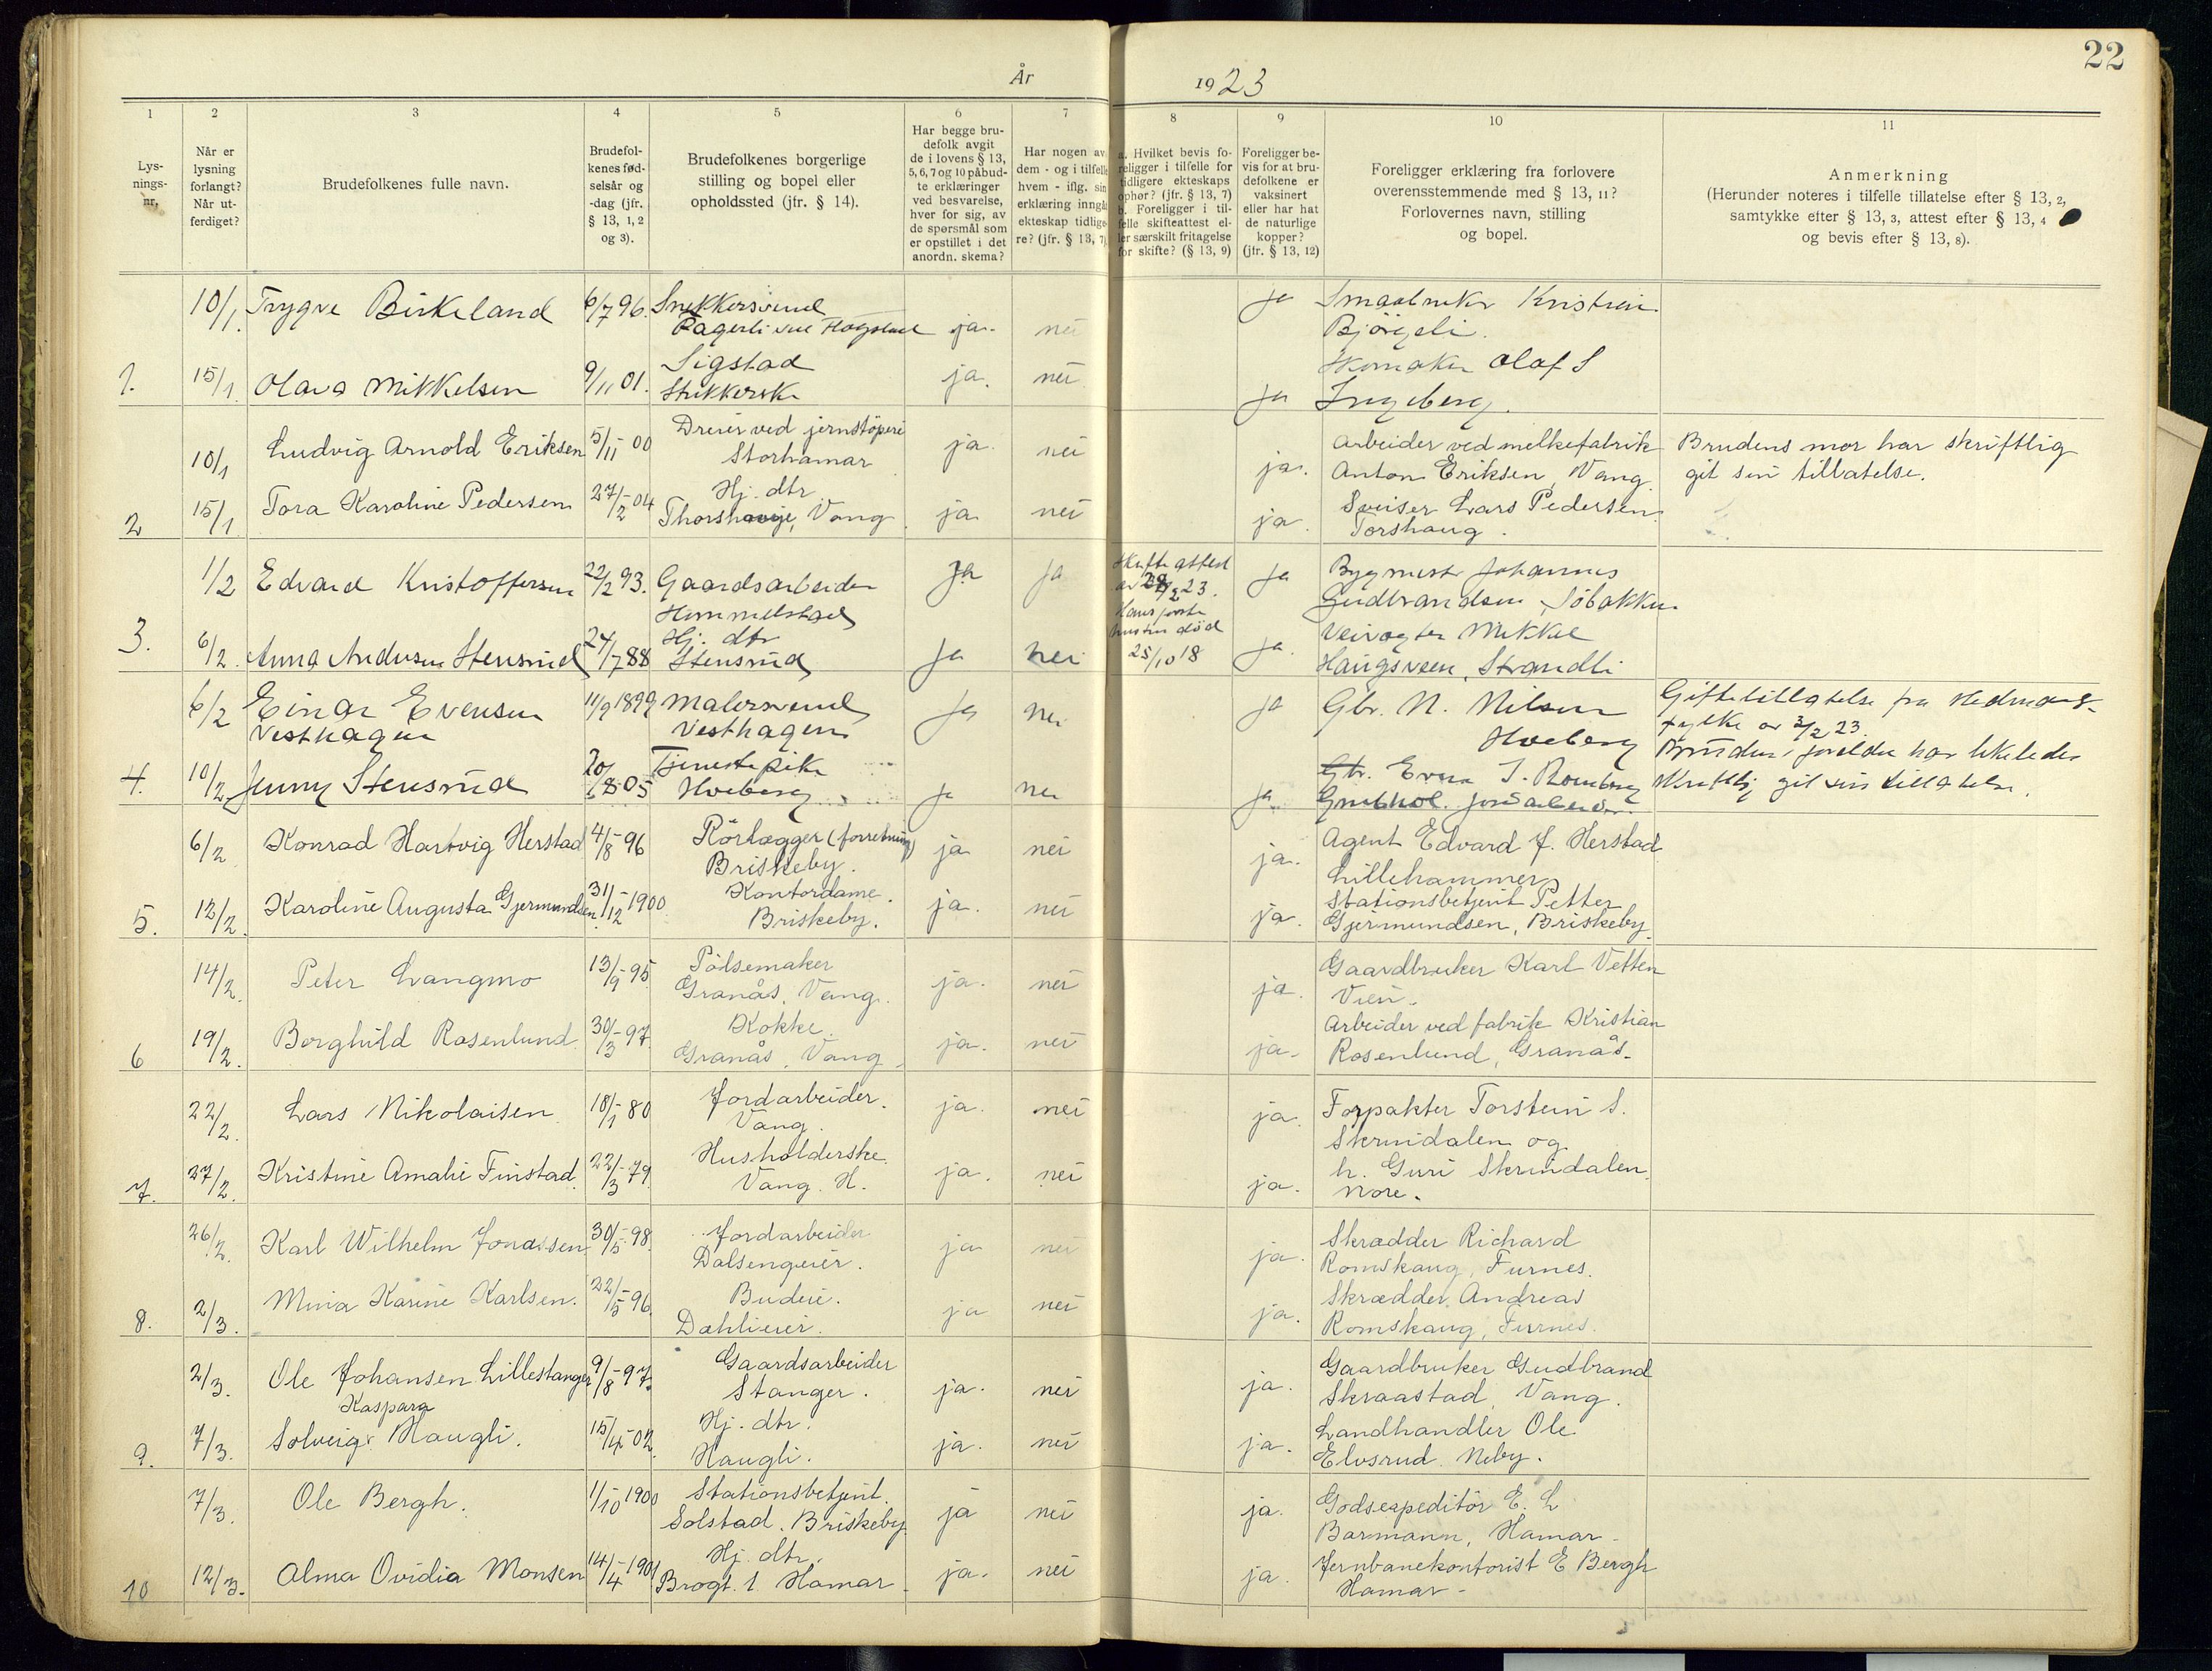 22
År 1923
1 2 3 4 5 6 7 8 9 10 11
Lys-
nings-
nr.
Når er
lysning
forlangt?
Når ut-
ferdiget?
Brudefolkenes fulle navn.
Brudefol-
kenes fød-
selsår og
-dag (jfr.
§ 13, 1, 2
og 3).
Brudefolkenes borgerlige
stilling og bopel eller
opholdssted (jfr. § 14).
Har begge bru-
defolk avgit
de i lovens § 13,
5, 6, 7 og 10 påbud-
te erklæringer
ved besvarelse,
hver for sig, av
de spørsmål som
er opstillet i det
anordn. skema?
Har nogen av
dem - og i tilfelle
hvem - iflg. sin
erklæring inngåt
ekteskap tidlige-
re? (jfr. § 13, 7)
a. Hvilket bevis fo-
religger i tilfelle for
tidligere ekteskaps
ophør? (jfr. § 13, 7)
b. Foreligger i til-
felle skifteattest el-
ler særskilt fritagelse
for skifte? (§ 13, 9)
Foreligger be-
vis for at bru-
defolkene er
vaksinert
eller har hat
de naturlige
kopper?
(jfr. § 13, 12)
Foreligger erklæring fra forlovere
overensstemmende med § 13, 11?
Forlovernes navn, stilling
og bopel.
Anmerkning
(Herunder noteres i tilfelle tillatelse efter § 13, 2,
samtykke efter § 13, 3, attest efter § 13, 4
og bevis efter § 13, 8).
10/1. Trygve Birkeland 6/7 96. Snekkersvend ja. nei ja Smaabruker Kristian
Fagerli Bjørgeli.
1. 15/1. Olava Mikkelsen 9/11 01. Sigstad ja. nei ja Skomaker Olaf S
Strikkerske Ingeberg.
10/1 Ludvig Arnold Eriksen 5/11-00 Dreier ved jernstöperi ja. nei ja. Arbeider ved melkefabrik Brudens mor har skriftlig
Storhamar Anton Eriksen, Vang. git sin tillatelse.
2 15/1 Tora Karoline Pedersen 27/2-04 Hj. dtr. ja nei ja. Sveiser Lars Pedersen
Vang Torshaug.
1/2 Edvard Kristoffersen 22/2 93. Gaardsarbeider ja ja Skifteattest ja Bygmester Johannes
Hommelstad Gudbrandsen
3. 6/2. Anna Andersen Stensrud 24/7 88 Hj. dtr ja nei 25/10 18 ja. Veivogter Mikkel
Stensrud Haugsveen, Strandli
6/2 Einar Evensen 11/9 1899 Malersvend ja nei ja Gbr. N. Nilsen Giftetillatelse fra Hedmark
Vesthagen Vesthagen Hoeberg fylke av 3/2 23.
4. 10/2 Jenny Stensrud 20/8 05 Tjenestepike ja nei ja Gbr. Even Brudens foreldre har likeledes
Hoeberg skriftlig git sin tillatelse.
6/2 Konrad Hartvig Herstad 4/8-96 Rörlægger (forretning) ja nei ja. Agent Edvard J. Herstad
Briskeby. Lillehammer
5. 12/2. Karoline Augusta Gjermundsen 31/12-1900 Kontordame. ja. nei ja. Stationsbetjent Petter
Briskeby. Gjermundsen, Briskeby.
14/2. Peter Langmo 13/9-95 Pölsemaker ja. nei ja. Gaardbruker Karl Vetten
Granås, Vang. Vien.
6 19/2. Borghild Rosenlund 30/3-97. Kokke. ja. nei ja. Arbeider ved fabrik Kristian
Granås, Vang. Rosenlund, Granås.
22/2. Lars Nikolaisen 18/1-80 Jordarbeider. ja. nei ja. Forpakter Torstein S.
Vang. Skrindalen og
7. 27/2. Kristine Amalie Finstad. 22/3-79. Husholderske. ja. nei ja. h. Guri Skrindalen,
Vang. H. Nore.
26/2. Karl Wilhelm Jonassen 30/5-98. Jordarbeider ja nei ja. Skrædder Richard
Dalsengeier. Romskaug, Furnes.
8. 2/3. Mina Karine Karlsen. 22/5-96. Budeie. ja nei ja. Skrædder Andreas
Dahlieier. Romskaug, Furnes.
2/3. Ole Johansen Lillestanger 9/8-97. Gaardsarbeider ja. nei ja. Gaardbruker Gudbrand
Kaspara Stanger. Skraastad, Vang.
9. 7/3. Solveig Haugli. 15/4-02. Hj. dtr. ja. nei ja. Landhandler Ole
Haugli. Elvsrud Neby.
7/3. Ole Bergh. 1/10-1900 Stationsbetjent. ja nei ja. Godsexpeditör E. L
Solstad. Briskeby. Barmann, Hamar.
10 12/3. Alma Ovidia Monsen 14/4-1901 Hj. dtr. ja. nei ja. Jernbanekontorist E Bergh
Brogt. 1 Hamar. Hamar.